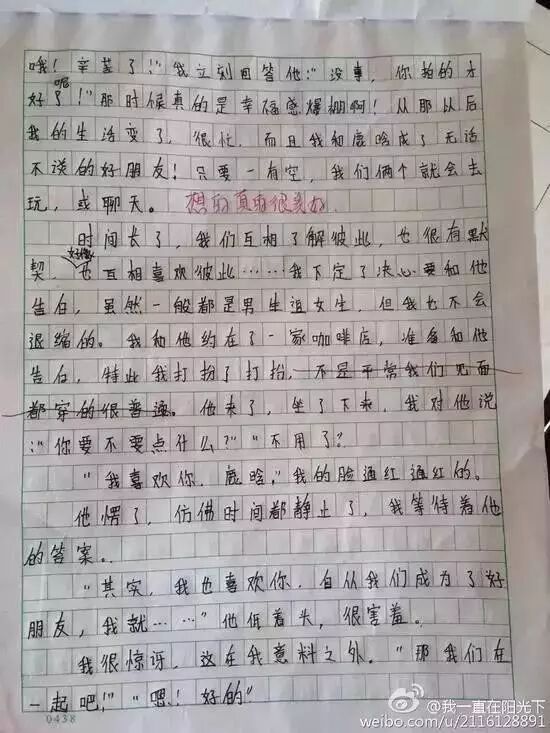 哦！辛苦了！"我立刻回答他："没事，你拍的才
好呢！"那时候真的是幸福感爆棚啊！从那以后
我的生活变了，很忙，而且我和鹿晗成了无话
不说的好朋友！只要一有空，我们俩个就会去
玩，或聊天。 想的真的很美好
时间长了，我们互相了解彼此，也很有默
契，好像也互相喜欢彼此……我下定了决心要和他
告白，虽然一般都是男生追女生，但我也不会
退缩的。我和他约在了一家咖啡店，准备和他
告白，特此我打扮了打扮，不是平常我们见面
都穿的很普通。他来了，坐了下来，我对他说
："你要不要点什么？""不用了？
"我喜欢你，鹿晗，"我的脸通红通红的。
他愣了，仿佛时间都静止了，我等待着他
的答案。
"其实，我也喜欢你，自从我们成为了好
朋友，我就……"他低着头，很害羞。
我很惊讶，这在我意料之外。"那我们在
一起吧！""嗯！好的"
0438
@我一直在阳光下
weibo.com/u/2116128891